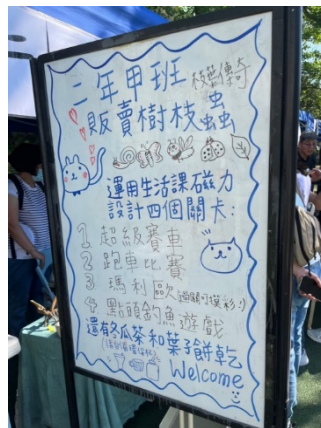 二年甲班 枝葉傳奇
販賣樹枝蟲
運用生活課磁力
設計四個關卡:
1 超級賽車
2 跑車比賽
3 瑪利歐(過關可摸彩:)
4 點頭釣魚遊戲
還有冬瓜茶和葉子餅乾
Welcome